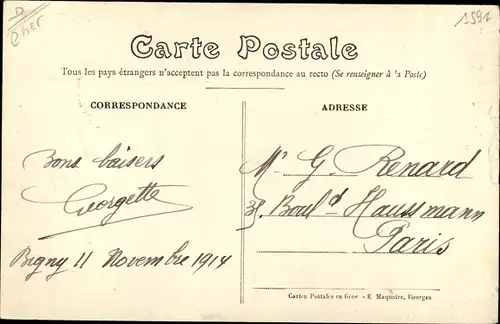 Cher
1591
Carte Postale
Tous les pays étrangers n'acceptent pas la correspondance au recto (Se renseigner à la Poste)
CORRESPONDANCE
ADRESSE
Bons baisers
Georgette
Bigny 11 Novembre 1914
Mr G. Renard
Bould Haussmann
Paris
Cartes Postales en Gros - E. Maquaire, Bourges